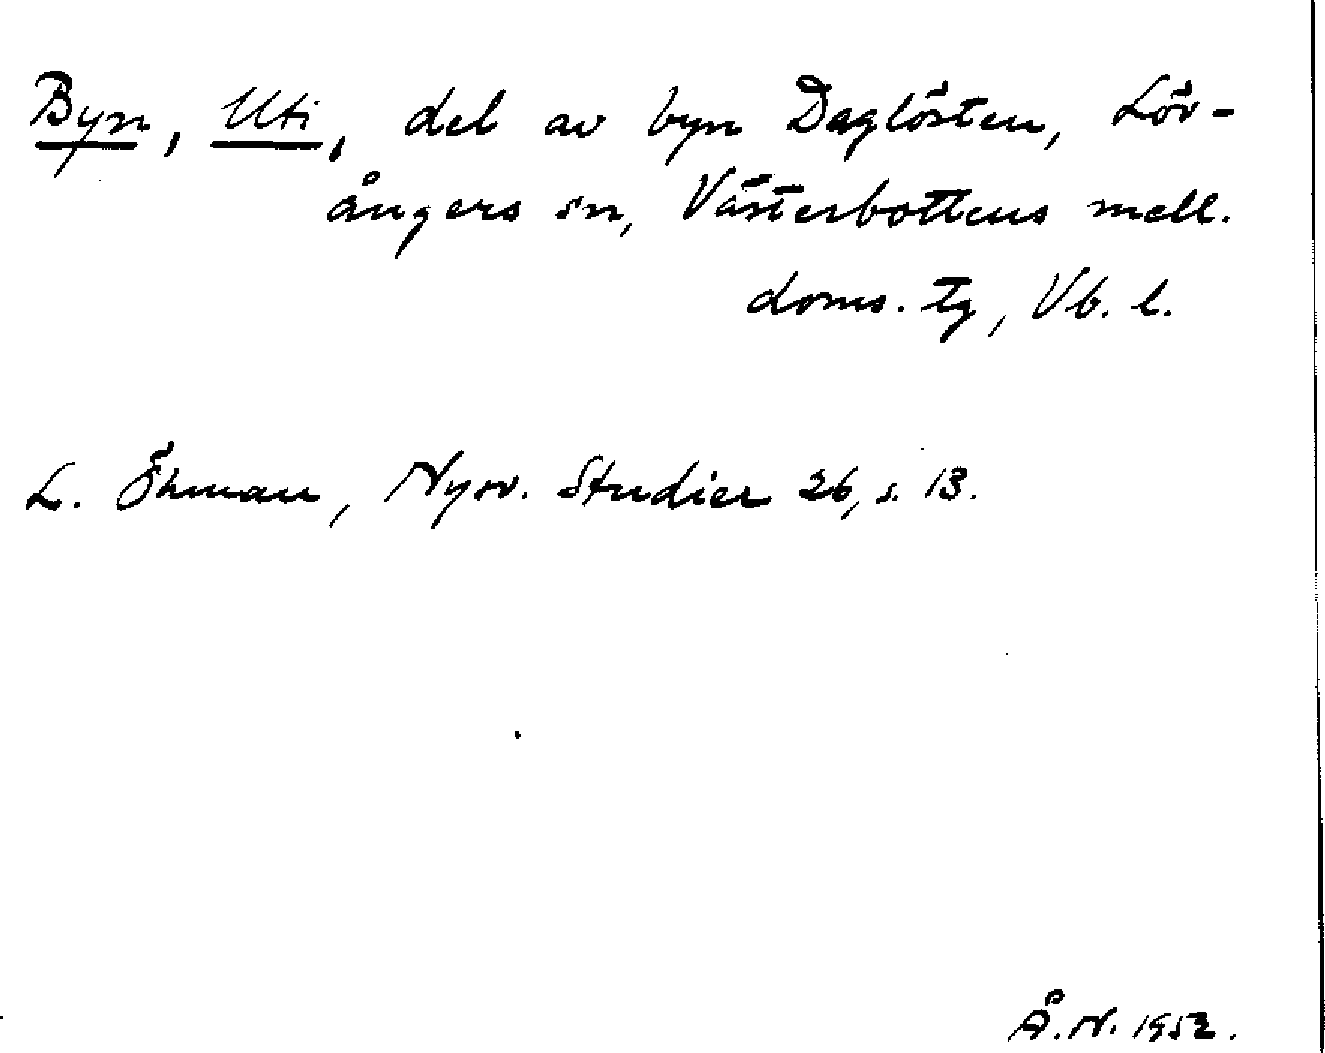 Byn, Uti, del av byn Daglösten, Löv-
ångers sn, Västerbottens mell.
doms. tg, Vb. l.
L. Öhman, Nysv. Studier 26, s. 13.
Å. N. 1952.